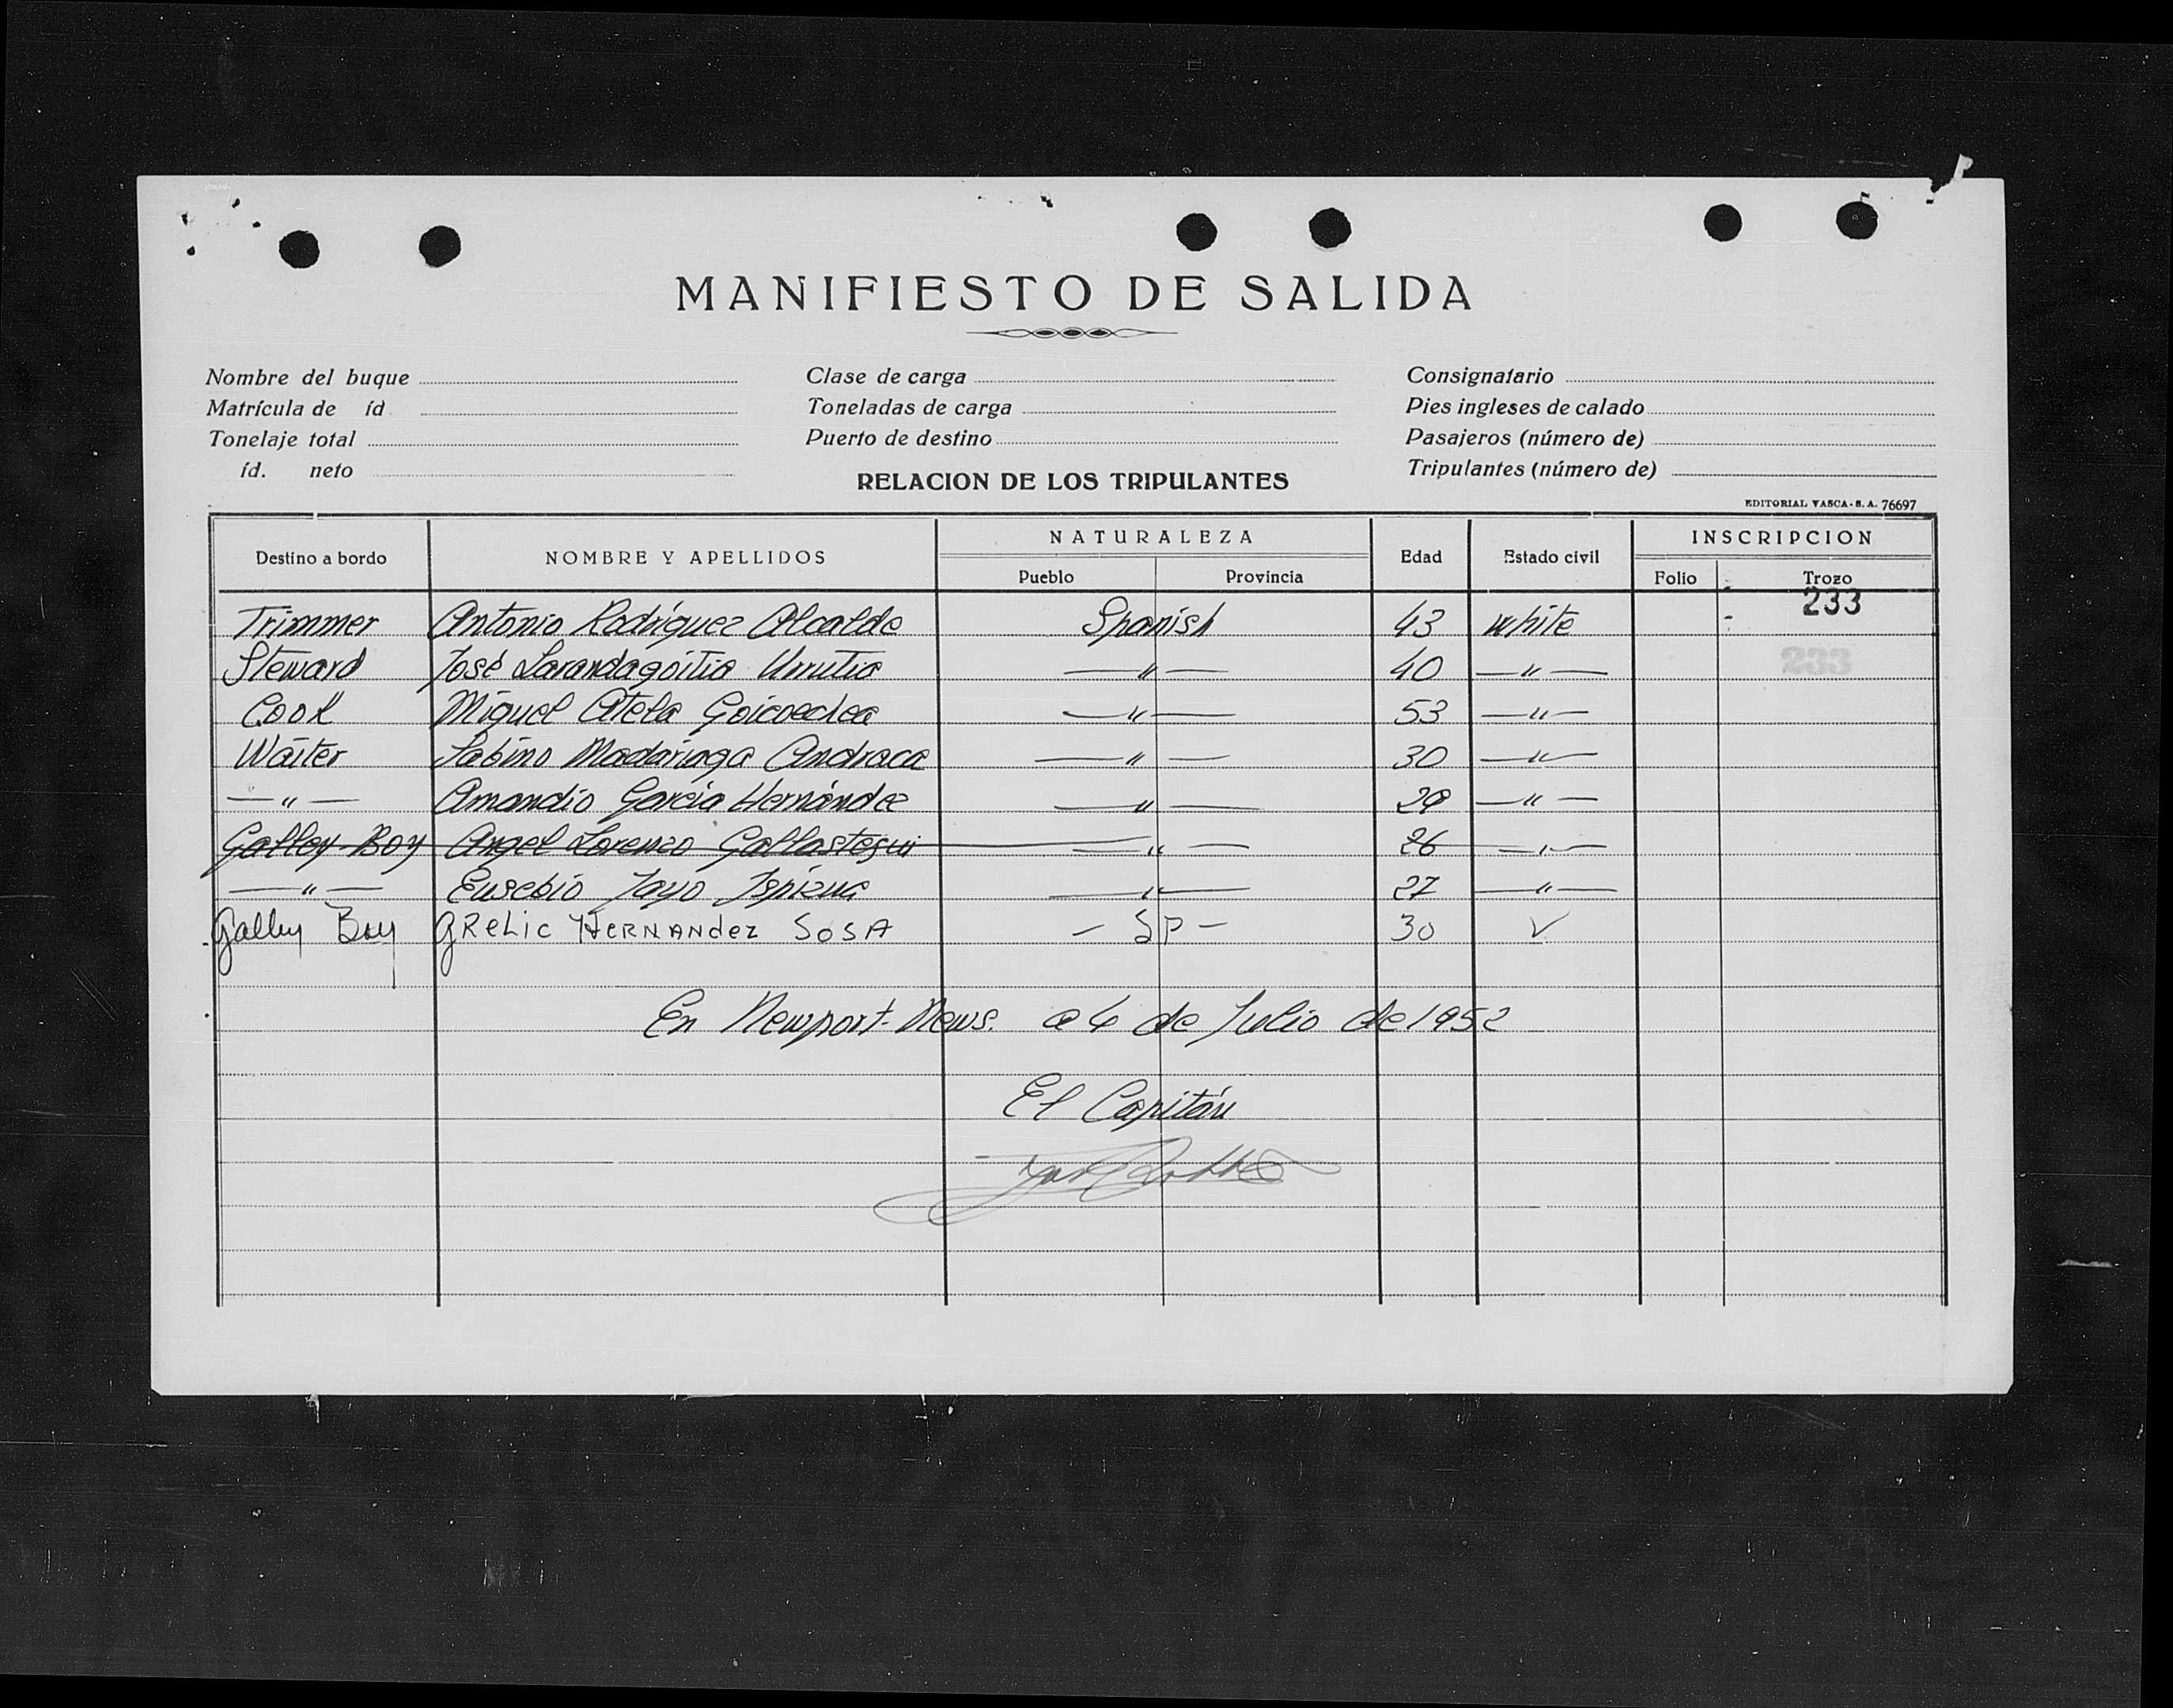 MANIFIESTO DE SALIDA
Nombre del buque Clase de carga Consignatario
Matrícula de íd Toneladas de carga Pies ingleses de calado
Tonelaje total Puerto de destino Pasajeros (número de)
íd. neto RELACION DE LOS TRIPULANTES Tripulantes (número de)
EDITORIAL VASCA - S. A. 76697
Destino a bordo NOMBRE Y APELLIDOS NATURALEZA Edad Estado civil INSCRIPCION
Pueblo Provincia Folio Trozo
233
Trimmer Antonio Rodríguez Alcalde Spanish 43 white
Steward José Larandagoitia Urrutia — " — 40 — " — 233
Cook Miguel Atela Goicoechea — " — 53 — " —
Waiter Sabino Madariaga Andraca — " — 30 — " —
— " — Amandio García Hernández — " — 29 — " —
Galley-Boy Angel Lorenzo Gallastegui — " — 26 — " —
— " — Eusebio Jayo Ispizua — " — 27 — " —
Galley Boy GReLic HERNANdez SOSA — SP — 30 ✓
En Newport-News. a 4 de Julio de 1952
El Capitán